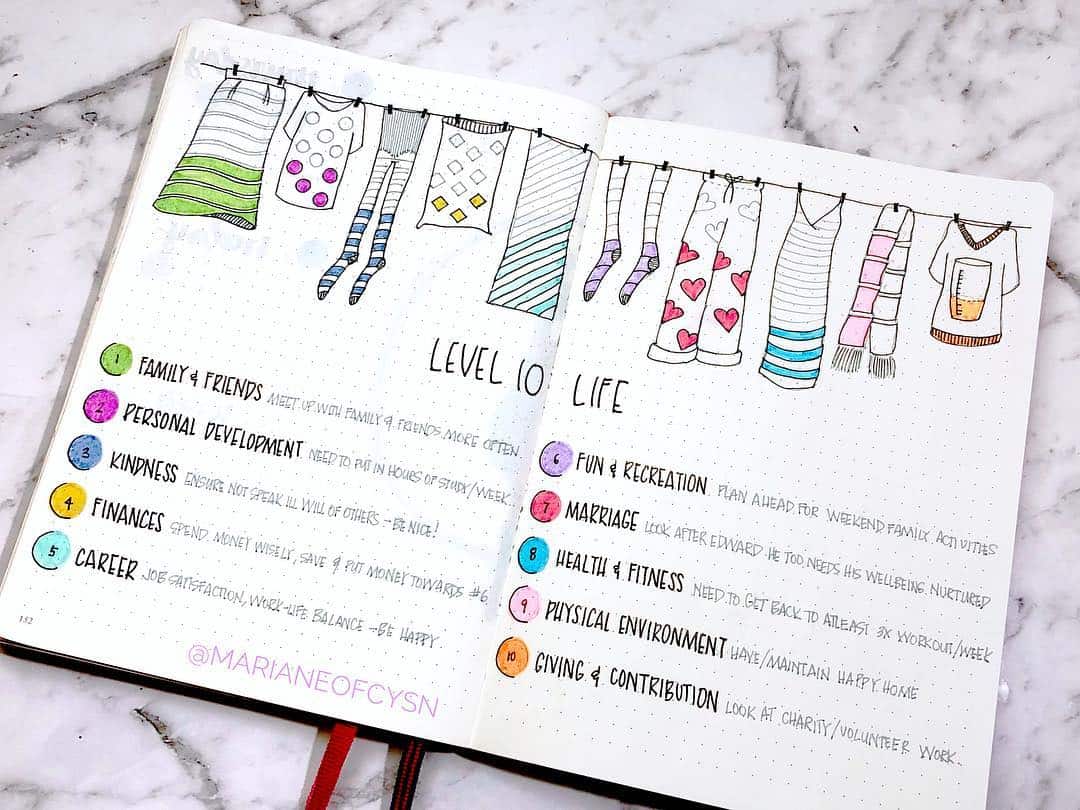 LEVEL 10 LIFE
1 FAMILY & FRIENDS MEET UP WITH FAMILY & FRIENDS MORE OFTEN.
2 PERSONAL DEVELOPMENT NEED TO PUT IN HOURS OF STUDY/WEEK
3 KINDNESS ENSURE NOT SPEAK ILL WILL OF OTHERS → BE NICE!
4 FINANCES SPEND MONEY WISELY, SAVE & PUT MONEY TOWARDS #6
5 CAREER JOB SATISFACTION, WORK-LIFE BALANCE → BE HAPPY
132
@MARIANEOFCYSN
6 FUN & RECREATION PLAN AHEAD FOR WEEKEND FAMILY ACTIVITIES
7 MARRIAGE LOOK AFTER EDWARD HE TOO NEEDS HIS WELLBEING NURTURED
8 HEALTH & FITNESS NEED TO GET BACK TO ATLEAST 3X WORKOUT/WEEK
9 PHYSICAL ENVIRONMENT HAVE/MAINTAIN HAPPY HOME
10 GIVING & CONTRIBUTION LOOK AT CHARITY/VOLUNTEER WORK.